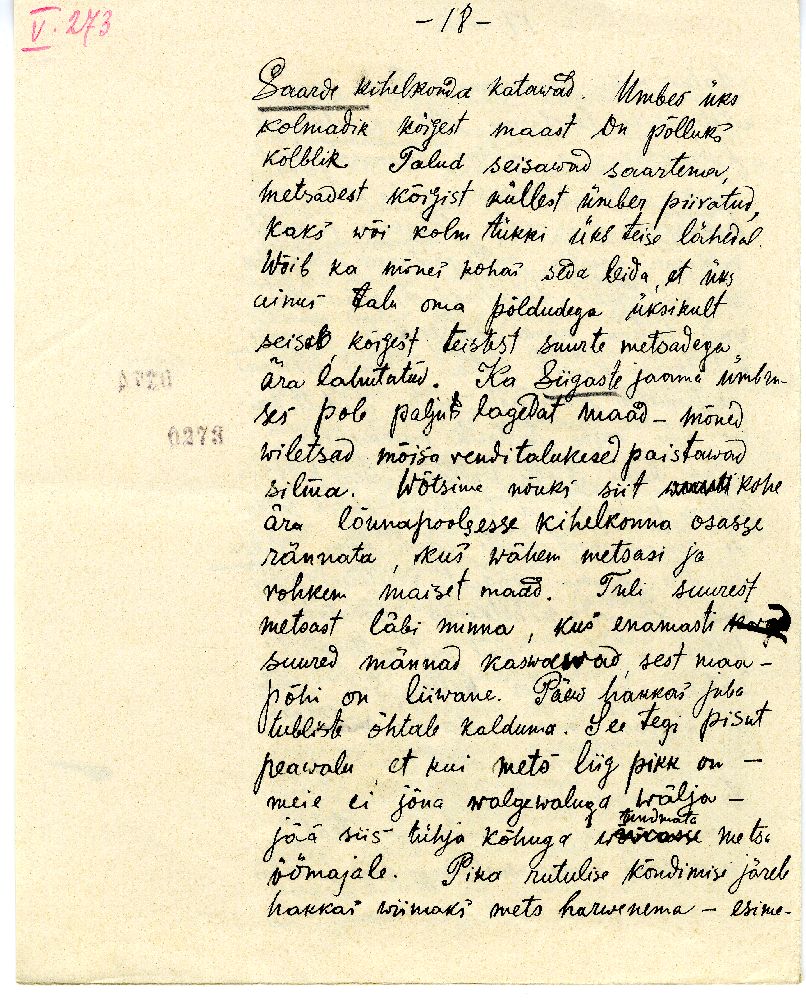 V. 273
-18-
Saarde kihelkonda katawad. Umbes üks
kolmadik kõigest maast on põlluks
kõlblik. Talud seisawad saartema,
metsadest kõigist küllest ümber piiratud,
kaks wõi kolm tükki üks teise lähedal.
Wõib ka mõnes kohas seda leida, et üks
ainus talu oma põldudega üksikult
seisab, kõigest teistest suurte metsadega
ära lahutatud. Ka Siigaste jaama ümbru-
ses pole paljut lagedat maad – mõned
wiletsad mõisa renditalukesed paistawad
silma. Wõtsime nõuks siit kohe
ära lõunapoolsesse kihelkonna osasse
rännata, kus wähem metsasi ja
rohkem maiset maad. Tuli suurest
metsast läbi minna, kus enamasti
suured männad kaswawad, sest maa-
põhi on liiwane. Päew hakkas juba
tubliste õhtale kalduma. See tegi pisut
peawalu, et kui mets liig pikk on –
meie ei jõua walgewaluga wälja –
jää siis tühja kõhuga tundmata metsa
öömajale. Pika rutulise kõndimise järele
hakkas wiimaks mets harwenema – esime-
0273